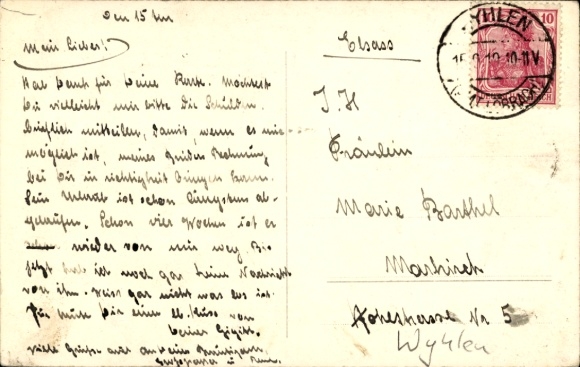 Den 15ten
Mein Lieber!
Hab Dank für Deine Karte. Möchtest
Du vielleicht mir bitte die Schulden
Brieflich mitteilen, damit, wenn es mir
möglich ist, meines Rechnung
bei Dir in richtigkeit bringen kann.
Sein Urlaub ist schon längstens ab-
gelaufen. Schon vier Wochen ist er
wieder von mir weg. Bis
jetzt hab ich noch gar keine Nachricht
von ihm. Weiss gar nicht was los ist.
Für heute Dir einen Kuss von
Deiner
viele Grüsse auch an
Grosspapa u.
Elsass
Fräulein
Marie Barthel
Markirch
Nr 5
Wyhlen
WYHLEN
10-11V
(AMT LÖRRACH)
10